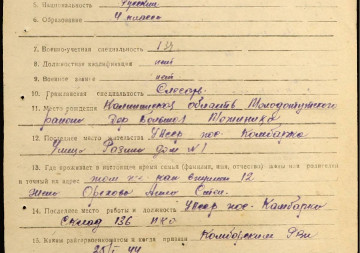 5. Национальность русский
6. Образование 4 класса
7. Военноучетная специальность 134
8. Должностная квалификация нет
9. Военное звание нет
10. Гражданская специальность Слесарь
11. Место рождения Калининская область Молодотудского
района дер Большое
12. Последнее место жительства УАССР пос. Камбарка
улица Разина дом № 1
13. Где проживает в настоящее время семья (фамилия, имя, отчество) жены или родителей
и точный их адрес как в пункте 12.
Жена Орехова Анна
14. Последнее место работы и должность УАССР пос. Камбарка
Склад 136 НКО
15. Каким райгорвоенкоматом и когда призван Камбарским РВК